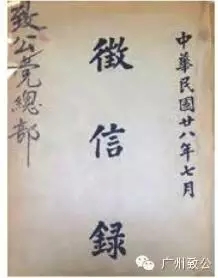 中華民國廿八年七月
徵信錄
致公党總部
广州致公